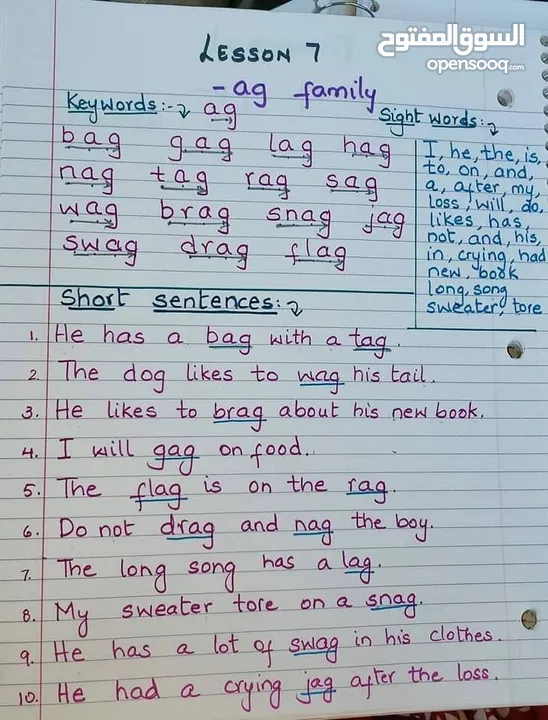 السوق المفتوح
opensooq.com
LESSON 7
-ag family
Keywords:- ag
bag gag lag hag
nag tag rag sag
wag brag snag jag
swag drag flag
Sight words:
I, he, the, is,
to, on, and,
a, after, my,
loss, will, do,
likes, has,
not, and, his,
in, crying, had
new, book
long, song
sweater, tore
Short sentences:
1. He has a bag with a tag.
2. The dog likes to wag his tail.
3. He likes to brag about his new book.
4. I will gag on food.
5. The flag is on the rag.
6. Do not drag and nag the boy.
7. The long song has a lag.
8. My sweater tore on a snag.
9. He has a lot of swag in his clothes.
10. He had a crying jag after the loss.